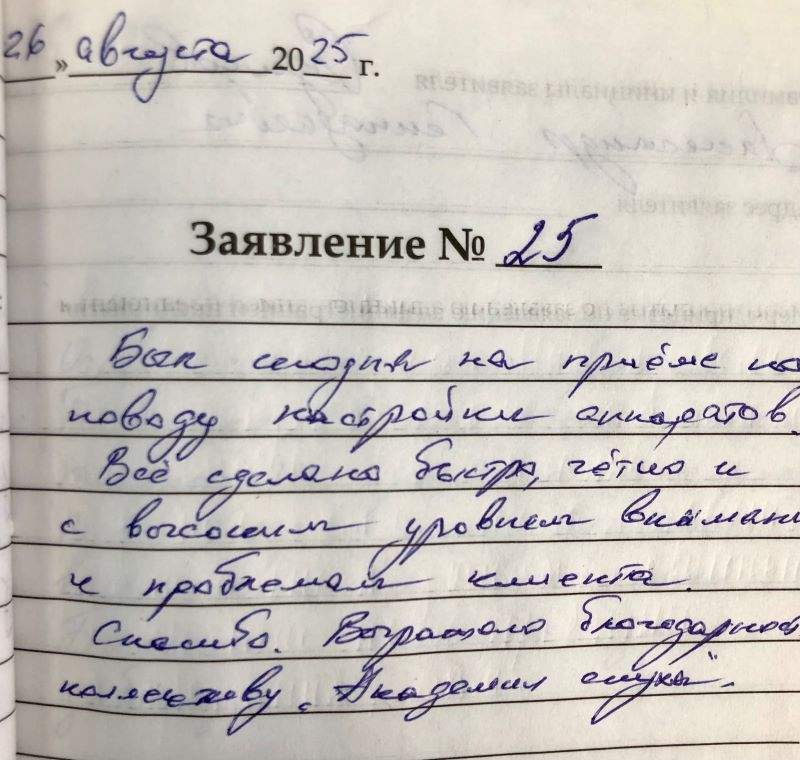 26 » августа 2025 г.
Заявление № 25
Был сегодня на приёме по
поводу настройки аппаратов.
Всё сделано быстро, чётко и
с высоким уровнем внимани
к проблемам клиента.
Спасибо. Выражаю благодарност
коллективу „Академия слуха".